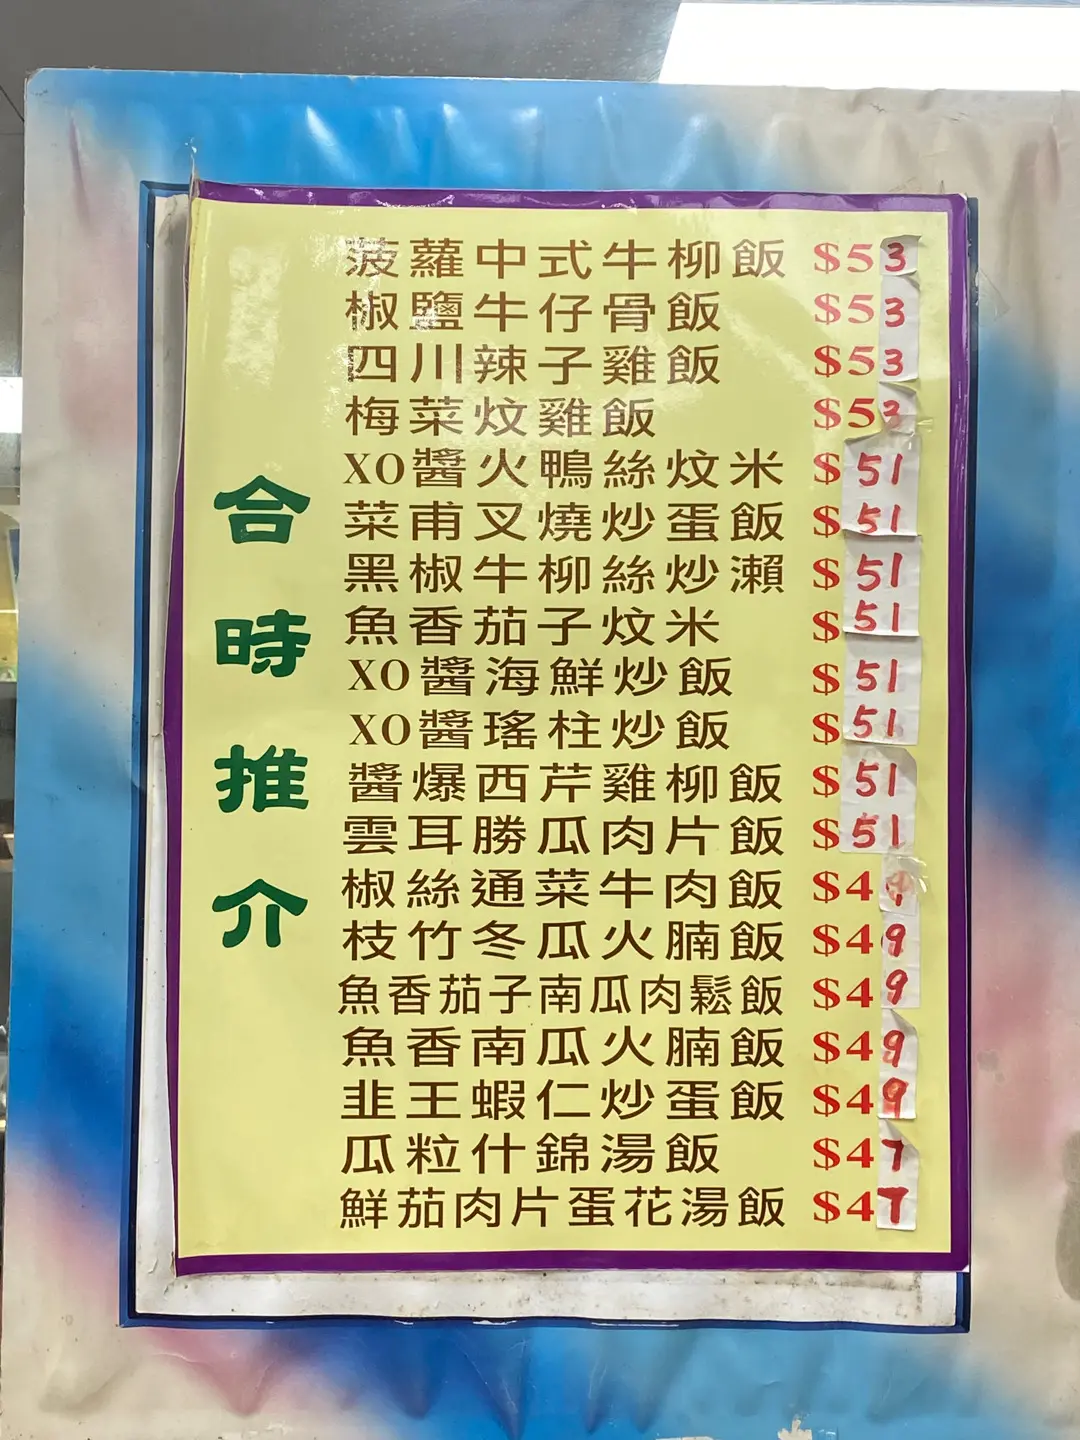 合時推介
菠蘿中式牛柳飯 $53
椒鹽牛仔骨飯 $53
四川辣子雞飯 $53
梅菜炆雞飯 $53
XO醬火鴨絲炆米 $51
菜甫叉燒炒蛋飯 $51
黑椒牛柳絲炒瀨 $51
魚香茄子炆米 $51
XO醬海鮮炒飯 $51
XO醬瑤柱炒飯 $51
醬爆西芹雞柳飯 $51
雲耳勝瓜肉片飯 $51
椒絲通菜牛肉飯 $49
枝竹冬瓜火腩飯 $49
魚香茄子南瓜肉鬆飯 $49
魚香南瓜火腩飯 $49
韭王蝦仁炒蛋飯 $49
瓜粒什錦湯飯 $47
鮮茄肉片蛋花湯飯 $47